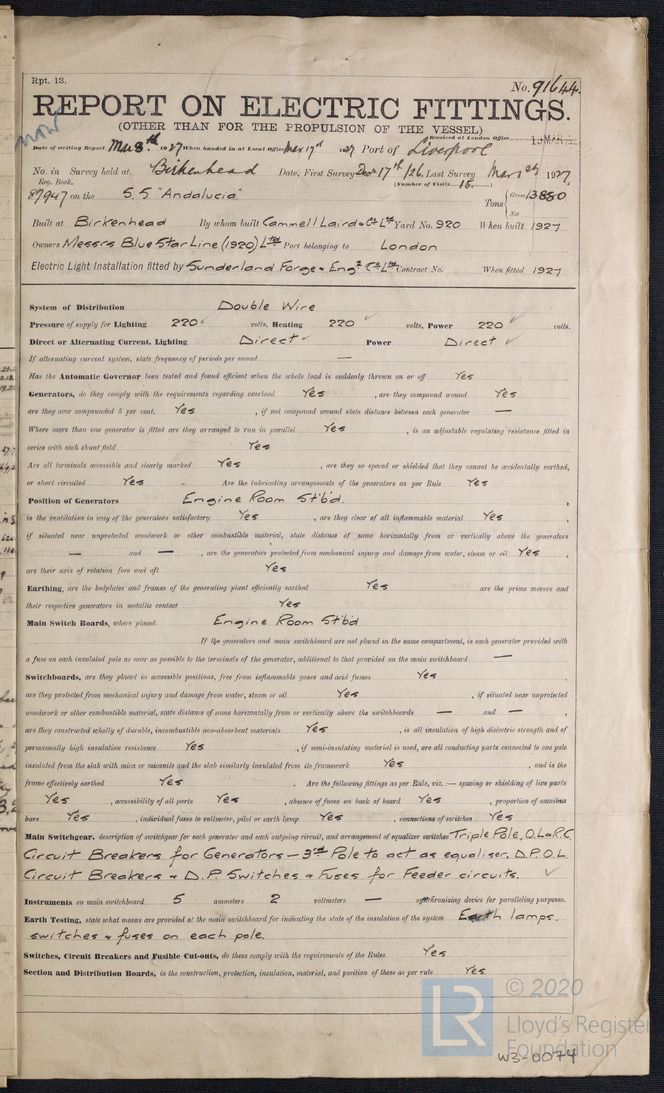 Rpt. 13.
No. 91644.
REPORT ON ELECTRIC FITTINGS.
(OTHER THAN FOR THE PROPULSION OF THE VESSEL)
Received at London Office
Date of writing Report Mar 8th 1927 When handed in at Local Office Mar 17th 1927 Port of Liverpool
No. in Survey held at Birkenhead Date, First Survey Decr 17th /26 Last Survey 1927
Reg. Book. (Number of Visits 15.)
87947 on the S.S "Andalucia" Tons { Gross 13880
Net
Built at Birkenhead By whom built Cammell Laird & Co Ltd Yard No. 920 When built 1927
Owners Messrs Blue Star Line (1920) Ltd Port belonging to London
Electric Light Installation fitted by Sunderland Forge & Engg Co Ltd Contract No. When fitted 1927
System of Distribution Double Wire
Pressure of supply for Lighting 220 volts, Heating 220 volts, Power 220 volts.
Direct or Alternating Current, Lighting Direct Power Direct
If alternating current system, state frequency of periods per second —
Has the Automatic Governor been tested and found efficient when the whole load is suddenly thrown on or off Yes
Generators, do they comply with the requirements regarding overload Yes , are they compound wound Yes
are they over compounded 5 per cent. Yes , if not compound wound state distance between each generator —
Where more than one generator is fitted are they arranged to run in parallel Yes , is an adjustable regulating resistance fitted in
series with each shunt field Yes
Are all terminals accessible and clearly marked Yes , are they so spaced or shielded that they cannot be accidentally earthed,
or short circuited Yes . Are the lubricating arrangements of the generators as per Rule Yes
Position of Generators Engine Room St'b'd. ,
is the ventilation in way of the generators satisfactory Yes , are they clear of all inflammable material Yes ,
if situated near unprotected woodwork or other combustible material, state distance of same horizontally from or vertically above the generators
— and — , are the generators protected from mechanical injury and damage from water, steam or oil Yes ,
are their axis of rotation fore and aft Yes
Earthing, are the bedplates and frames of the generating plant efficiently earthed Yes are the prime movers and
their respective generators in metallic contact Yes
Main Switch Boards, where placed Engine Room St'b'd
If the generators and main switchboard are not placed in the same compartment, is each generator provided with
a fuse on each insulated pole as near as possible to the terminals of the generator, additional to that provided on the main switchboard —
Switchboards, are they placed in accessible positions, free from inflammable gases and acid fumes Yes ,
are they protected from mechanical injury and damage from water, steam or oil Yes , if situated near unprotected
woodwork or other combustible material, state distance of same horizontally from or vertically above the switchboards — and — ,
are they constructed wholly of durable, incombustible non-absorbent materials Yes , is all insulation of high dielectric strength and of
permanently high insulation resistance Yes , if semi-insulating material is used, are all conducting parts connected to one pole
insulated from the slab with mica or micanite and the slab similarly insulated from its framework Yes , and is the
frame effectively earthed Yes . Are the following fittings as per Rule, viz.:— spacing or shielding of live parts
Yes , accessibility of all parts Yes , absence of fuses on back of board Yes , proportion of omnibus
bars Yes , individual fuses to voltmeter, pilot or earth lamp Yes , connections of switches Yes
Main Switchgear, description of switchgear for each generator and each outgoing circuit, and arrangement of equalizer switches Triple Pole, O.L & R.C
Circuit Breakers for Generators — 3rd Pole to act as equaliser. D.P.O.L
Circuit Breakers & D.P. Switches & Fuses for Feeder circuits.
Instruments on main switchboard 5 ammeters 2 voltmeters — synchronising device for paralleling purposes.
Earth Testing, state what means are provided at the main switchboard for indicating the state of the insulation of the system Earth lamps.
switches & fuses on each pole.
Switches, Circuit Breakers and Fusible Cut-outs, do these comply with the requirements of the Rules Yes
Section and Distribution Boards, is the construction, protection, insulation, material, and position of these as per rule Yes
LR © 2020
Lloyd's Register
Foundation
W3-0074